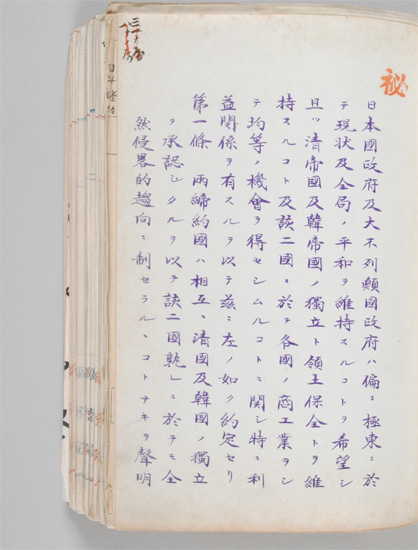 秘
日本國政府及大不列顚國政府ハ偏ニ極東ニ於
テ現狀及全局ノ平和ヲ維持スルコトヲ希望シ
且ツ清帝國及韓帝國ノ獨立ト領土保全トヲ維
持スルコト及該二國ニ於テ各國ノ商工業ヲシ
テ均等ノ機會ヲ得セシムルコトニ関シ特ニ利
益関係ヲ有スルヲ以テ茲ニ左ノ如ク約定セリ
第一條 両締約國ハ相互ニ清國及韓國ノ獨立
ヲ承認シタルヲ以テ該二國孰レニ於テモ全
然侵畧的趨向ニ制セラルヽコトナキヲ聲明